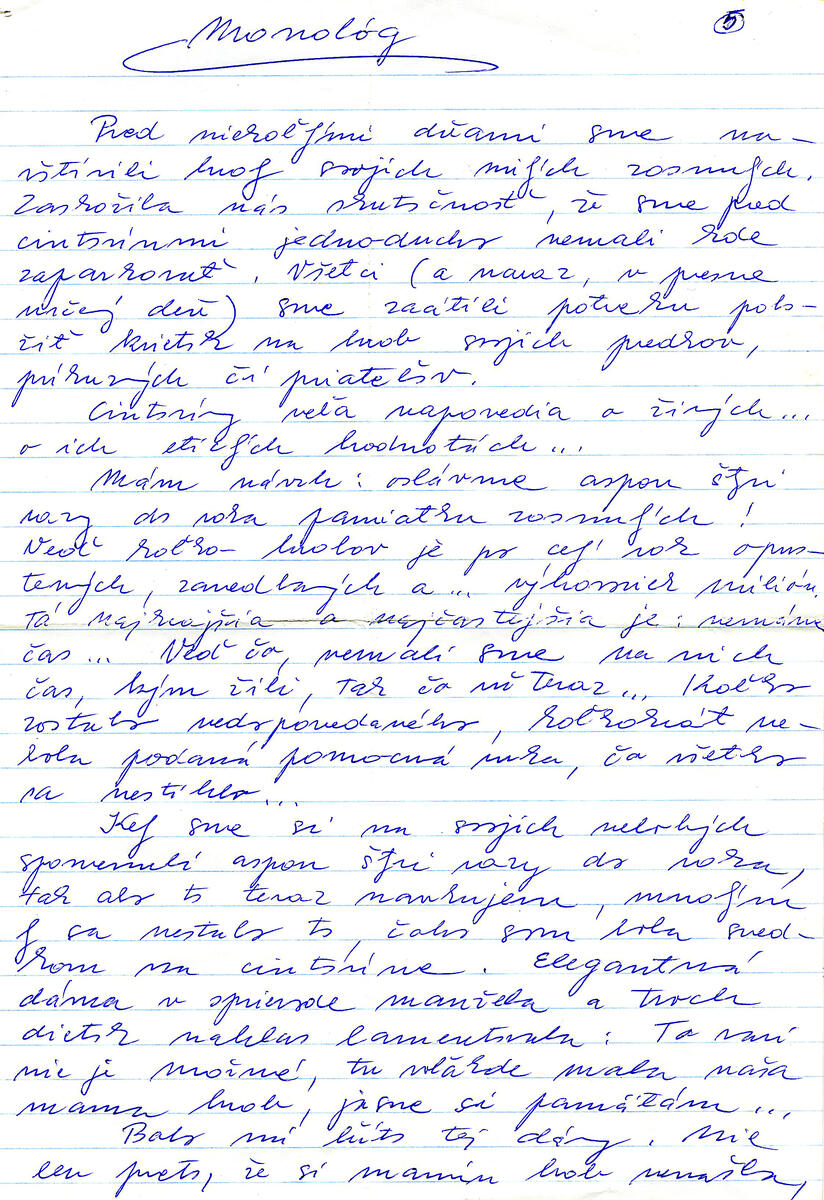 Monológ
5
Pred niekoľkými dňami sme na-
vštívili hrob svojich milých zosnulých.
Zaskočila nás skutočnosť, že sme pred
cintorínmi jednoducho nemali kde
zaparkovať. Všetci (a naraz, v presne
určený deň) sme zacítili potrebu polo-
žiť kvietok na hrob svojich predkov,
príbuzných či priateľov.
Cintoríny veľa napovedia o živých...
o ich etických hodnotách...
Mám návrh: oslávme aspon štyri
razy do roka pamiatku zosnulých!
Veď koľko hrobov je po celý rok opus-
tených, zanedbaných a... výhovoriek milión.
Tá najkrajšia a najčastejšia je: nemáme
čas... Veď čo, nemali sme na nich
čas, kým žili, tak čo už teraz... Koľko
zostalo nedopovedaného, koľkokrát ne-
bola podaná pomocná ruka, čo všetko
sa nestihlo...
Keby sme si na svojich nebohých
spomenuli aspon štyri razy do roka,
tak ako to teraz navrhujem, mnohým
by sa nestalo to, čoho som bola sved-
kom na cintoríne. Elegantná
dáma v sprievode manžela a troch
dietok nahlas lamentovala: To vari
nie je možné, tu voľakde mala naša
mama hrob, jasne si pamätám...
Bolo mi ľúto tej dámy. Nie
len preto, že si mamin hrob nenašla,